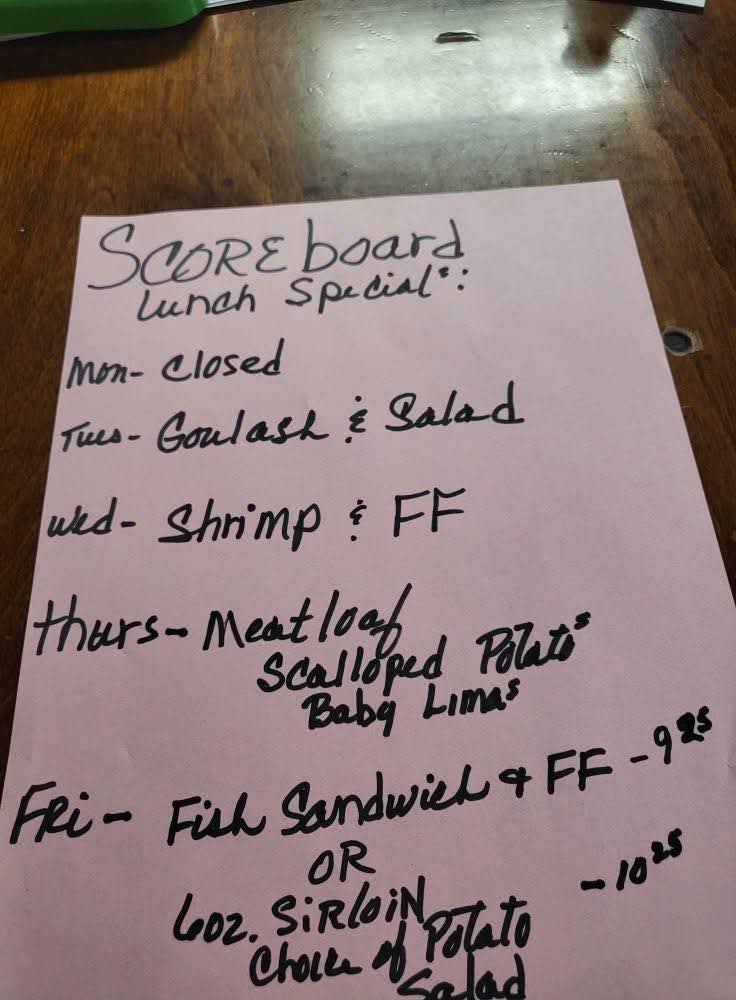 SCOREboard
Lunch Specials:
Mon- Closed
Tues- Goulash & Salad
Wed- Shrimp & FF
Thurs- Meatloaf
Scalloped Potatos
Baby Limas
FRi- Fish Sandwich & FF - 9 25
OR
6oz. SiRloiN - 10 25
Choice of Potato
Salad